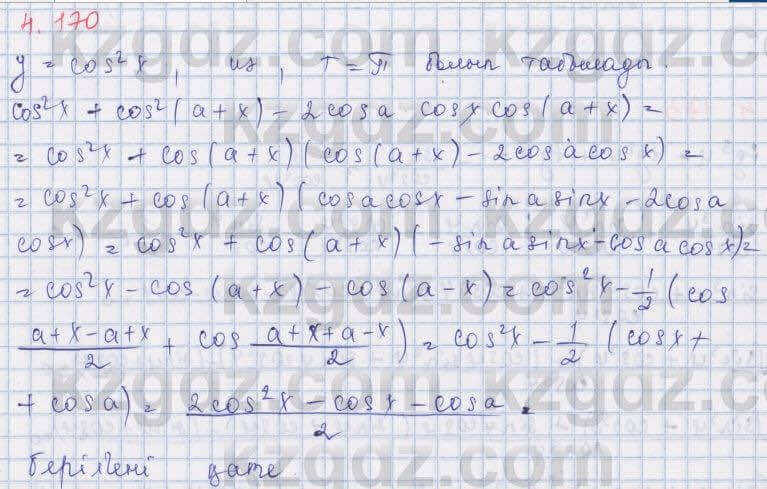 4.170
y = cos²x, из, T = π болып табылады.
cos²x + cos²(a+x) - 2cosa cosx cos(a+x) =
= cos²x + cos(a+x)(cos(a+x) - 2cosacosx) =
= cos²x + cos(a+x)(cosacosx - sinasinx - 2cosa
cosx) = cos²x + cos(a+x)(-sinasinx - cosacosx) =
= cos²x - cos(a+x) - cos(a-x) = cos²x - 1/2 (cos
(a+x-a+x)/2 + cos (a+x+a-x)/2) = cos²x - 1/2 (cosx +
+ cosa) = (2cos²x - cosx - cosa)/2.
берілгені қате
kzgdz.com